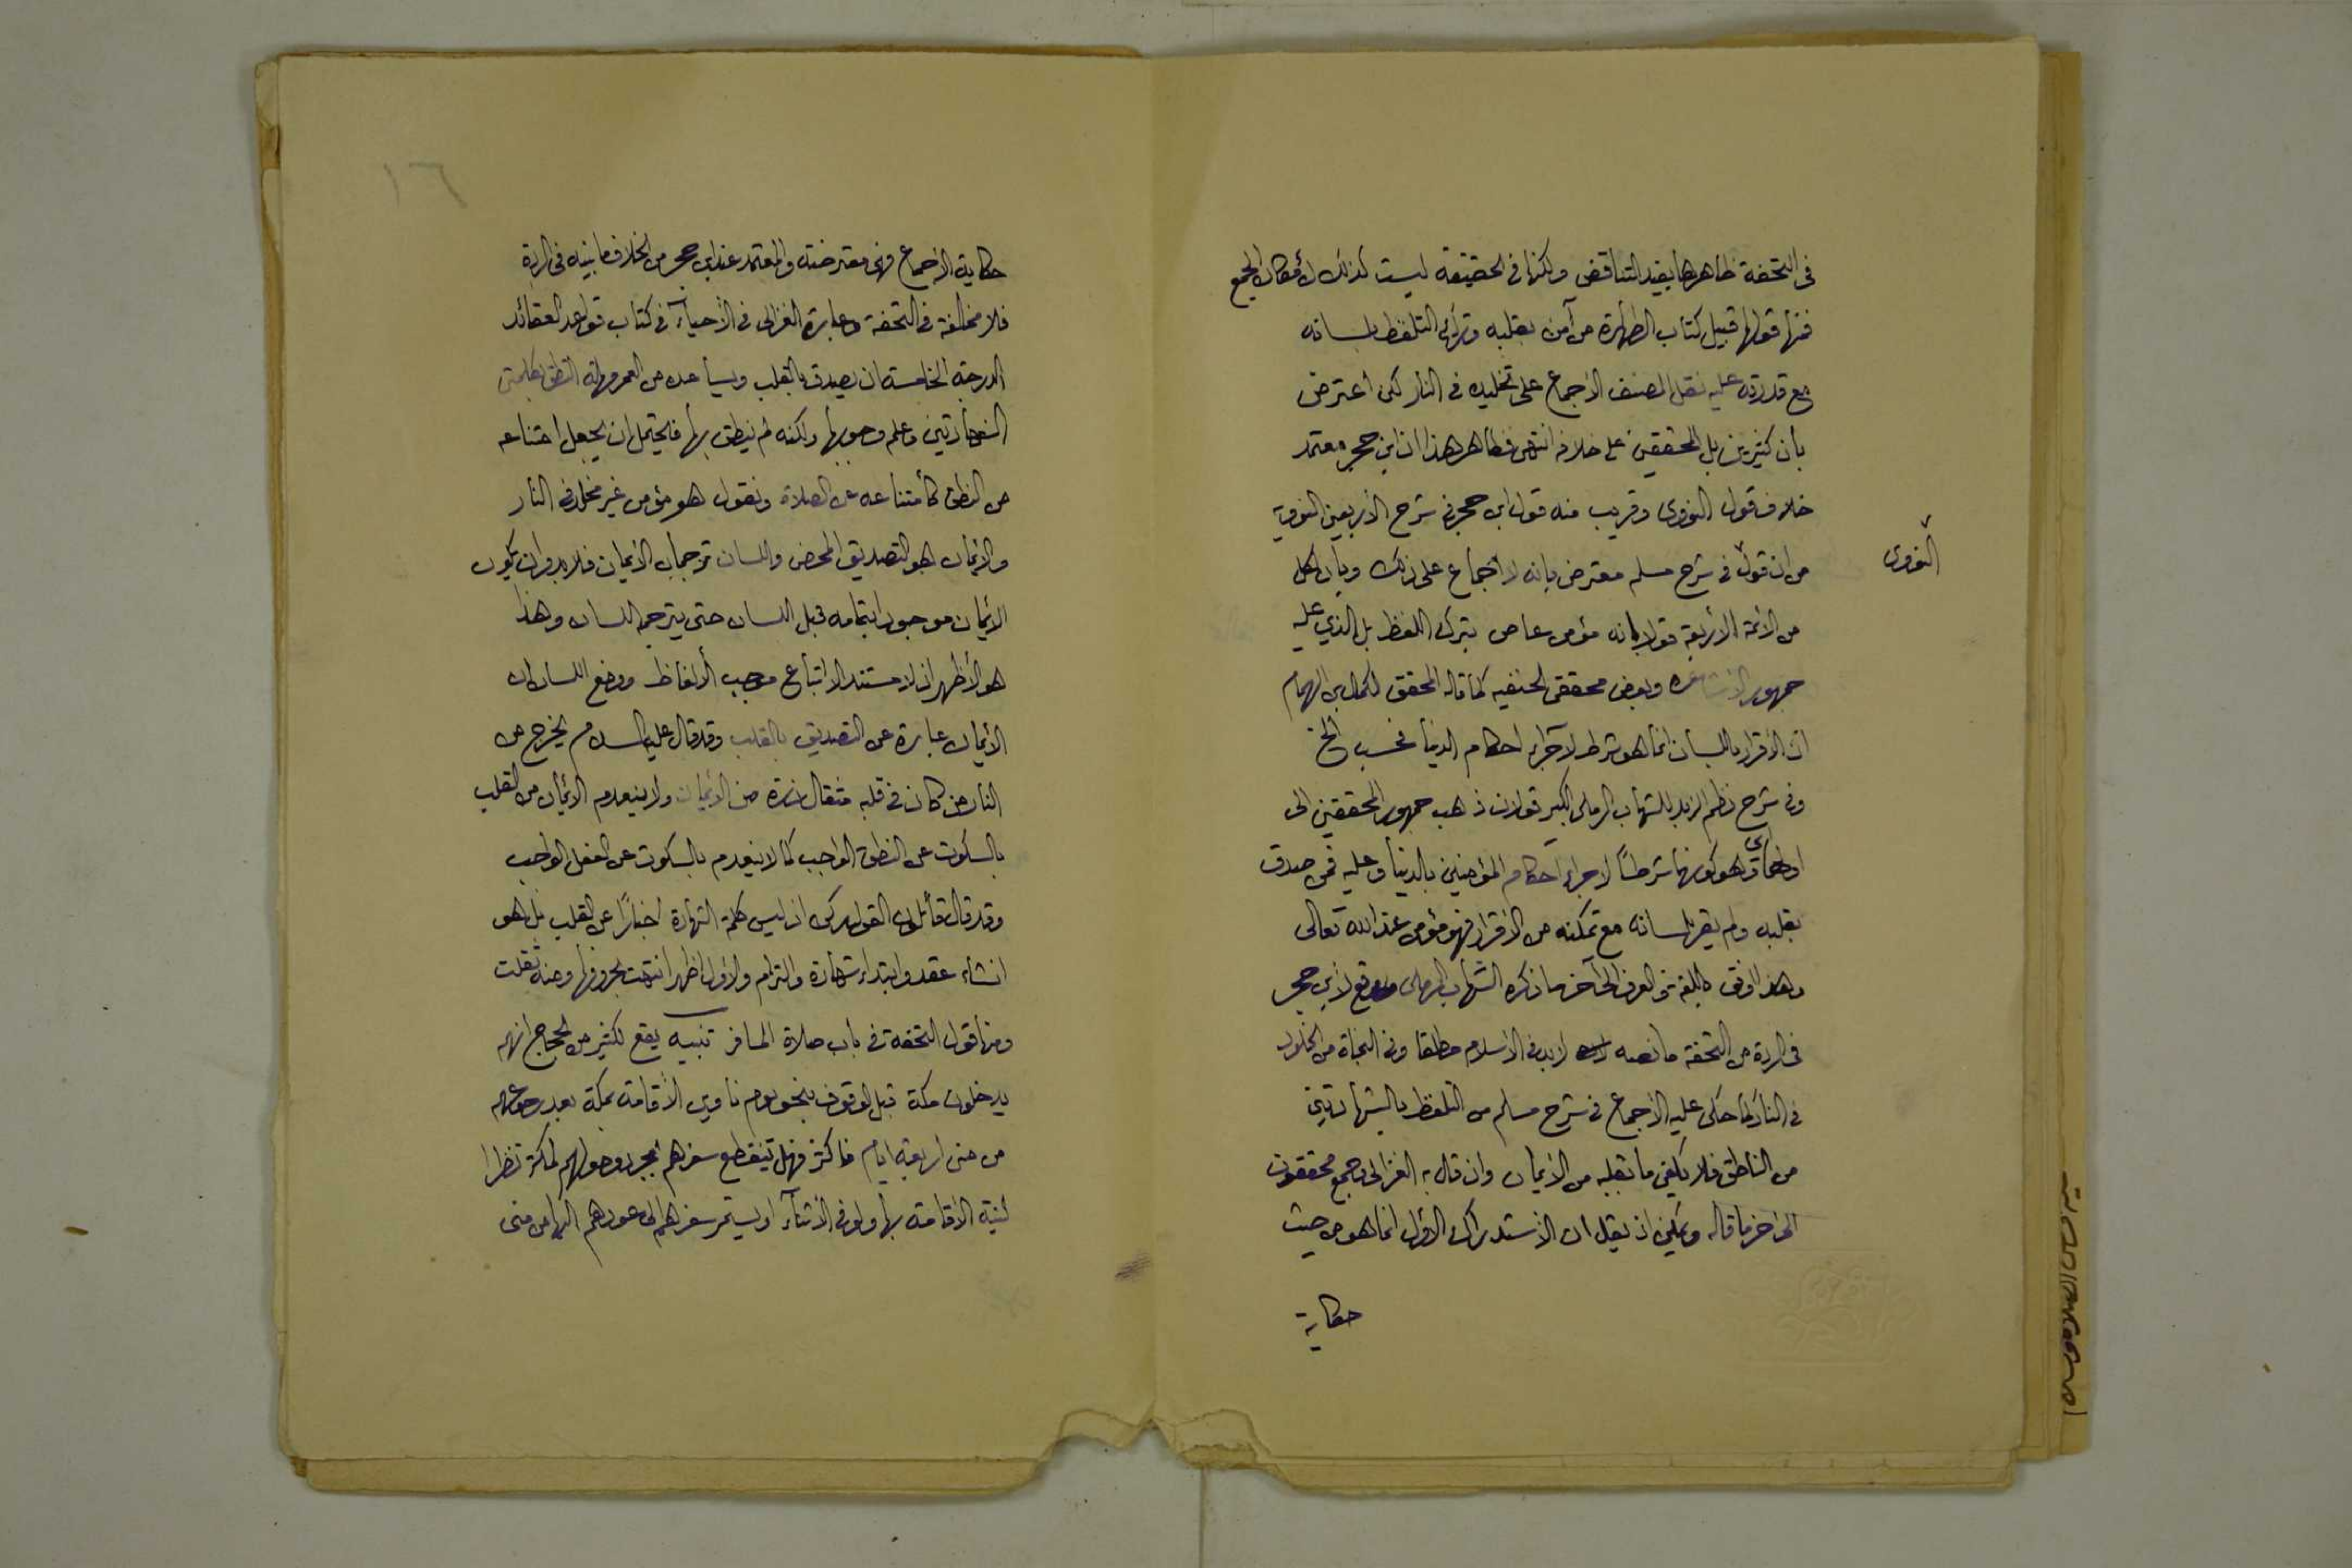 في التحفة ظاهرها يفيد التناقض ولكنها في الحقيقة ليست كذلك لأمكان الجمع
فمنها قولها قبيل كتاب الطهارة من آمن بقلبه وترك التلفظ بلسانه
مع قدرته عليه نقل المصنف الاجماع على تخليده في النار لكن اعترض
بأن كثيرين بل المحققين على خلافه انتهى فظاهر هذا ان ابن حجر معتمد
خلاف قول النووى وقريب منه قول ابن حجر في شرح الأربعين النووية
من ان قول في شرح مسلم معترض بانه لا اجماع على ذلك وبأن لكل
النووى
من الائمة الأربعة قولا بانه مؤمن عاص بترك اللفظ بل الذي عليه
جمهور الاشاعره وبعض محققى الحنفيه كما قاله المحقق الكمال بن الهمام
ان الأقرار باللسان انما هو شرط لاجراء احكام الدنيا فحسب الخ
وفي شرح نظم الزبد للشهاب الرملى الكبير قولان ذهب جمهور المحققين الى
اولهما اى وهو كونها شرطاً لاجراء احكام المؤمنين بالدنيا وعليه فمن صدق
بقلبه ولم يقر بلسانه مع تمكنه من الاقرار فهو مؤمن عند الله تعالى
وهذا اوفق باللغة والعرف الى آخر ما ذكره الشهاب الرملى ووقع لأبن حجر
في الردة من التحفة ما نصه لابد في الأسلام مطلقا وفي النجاة من الخلود
في النار كما حكى عليه الأجماع في شرح مسلم من التلفظ بالشهادتين
من الناطق فلا يكفي ما بقلبه من الأيمان وان قال به الغزالى وجمع محققون
الى آخر ما قاله ويمكن ان يقال ان الأستدراك الأول انما هو من حيث
حكاية
١٦
حكاية الأجماع فهى معترضة والمعتمد عند ابن حجر من الخلاف ما بينه في الردة
فلا مخالفة في التحفة وعبارة الغزالى في الأحياء في كتاب قواعد العقائد
الدرجة الخامسة ان يصدق بالقلب ويساعده من العمر مهلة النطق بكلمتى
الشهادتين وعلم وجوبها ولكنه لم ينطق بها فيحتمل ان يجعل امتناعه
من النطق كأمتناعه عن الصلاة ونقول هو مؤمن غير مخلد في النار
والأيمان هو التصديق المحض واللسان ترجمان الأيمان فلا بد وان يكون
الأيمان موجودا بتمامه قبل اللسان حتى يترجمه اللسان وهذا
هو الأظهر اذ لا مستند الا اتباع موجب الألفاظ ووضع اللسان ان
الأيمان عبارة عن التصديق بالقلب وقد قال عليه السلام يخرج من
النار من كان في قلبه مثقال ذرة من الأيمان ولا ينعدم الأيمان من القلب
بالسكوت عن النطق الواجب كما لا ينعدم بالسكوت عن الفعل الواجب
وقد قال قائلون القول ركن اذ ليس كلمة الشهادة اخبارًا عن القلب بل هو
انشاء عقد وابتداء شهادة والتزام والأول اظهر انتهت بحروفها ومنه نقلت
ومنها قول التحفة في باب صلاة المسافر تنبيه يقع لكثير من الحجاج انهم
يدخلون مكة قبل الوقوف بنحو يوم ناوين الأقامة بمكة بعد رجوعهم
من منى اربعة ايام فاكثر فهل ينقطع سفرهم بمجرد وصولهم لمكة نظرا
لنية الاقامة بها ولو في الأثناء او يستمر سفرهم الى عودهم اليها من منى